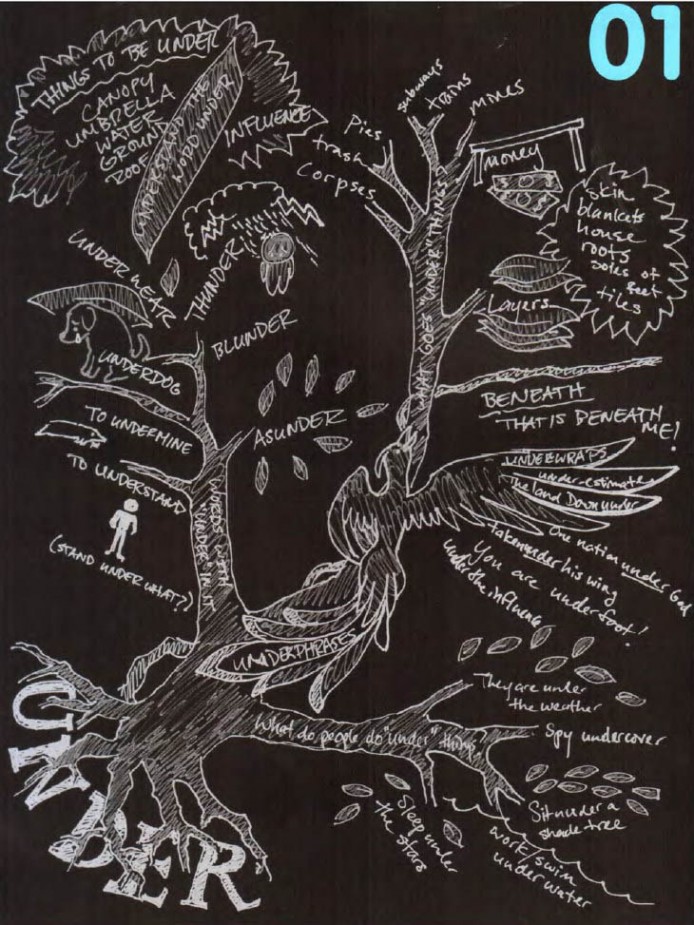 01
THINGS TO BE UNDER
CANOPY
UMBRELLA
WATER
GROUND
ROOF
UNDERSTAND THE
WORD UNDER
INFLUENCE
THUNDER
UNDERNEATH
UNDERDOG
BLUNDER
TO UNDERMINE
ASUNDER
TO UNDERSTAND
(STAND UNDER WHAT?)
WORDS WITH
"UNDER" IN IT
Pies
trash
Corpses
subways
trains
mines
money
WHAT GOES "UNDER" THINGS?
skin
blankets
house
roots
soles of
feet
tiles
Layers
BENEATH
THAT IS BENEATH
ME!
UNDERWRAPS
under-estimate
The land Down under
One nation under God
taken under his wing
You are underfoot!
under the influence
UNDERPHRASES
UNDER
What do people do "under" things
They are under
the weather
Spy undercover
Sit under a
shade tree
work/swim
under water
Sleep under
the stars